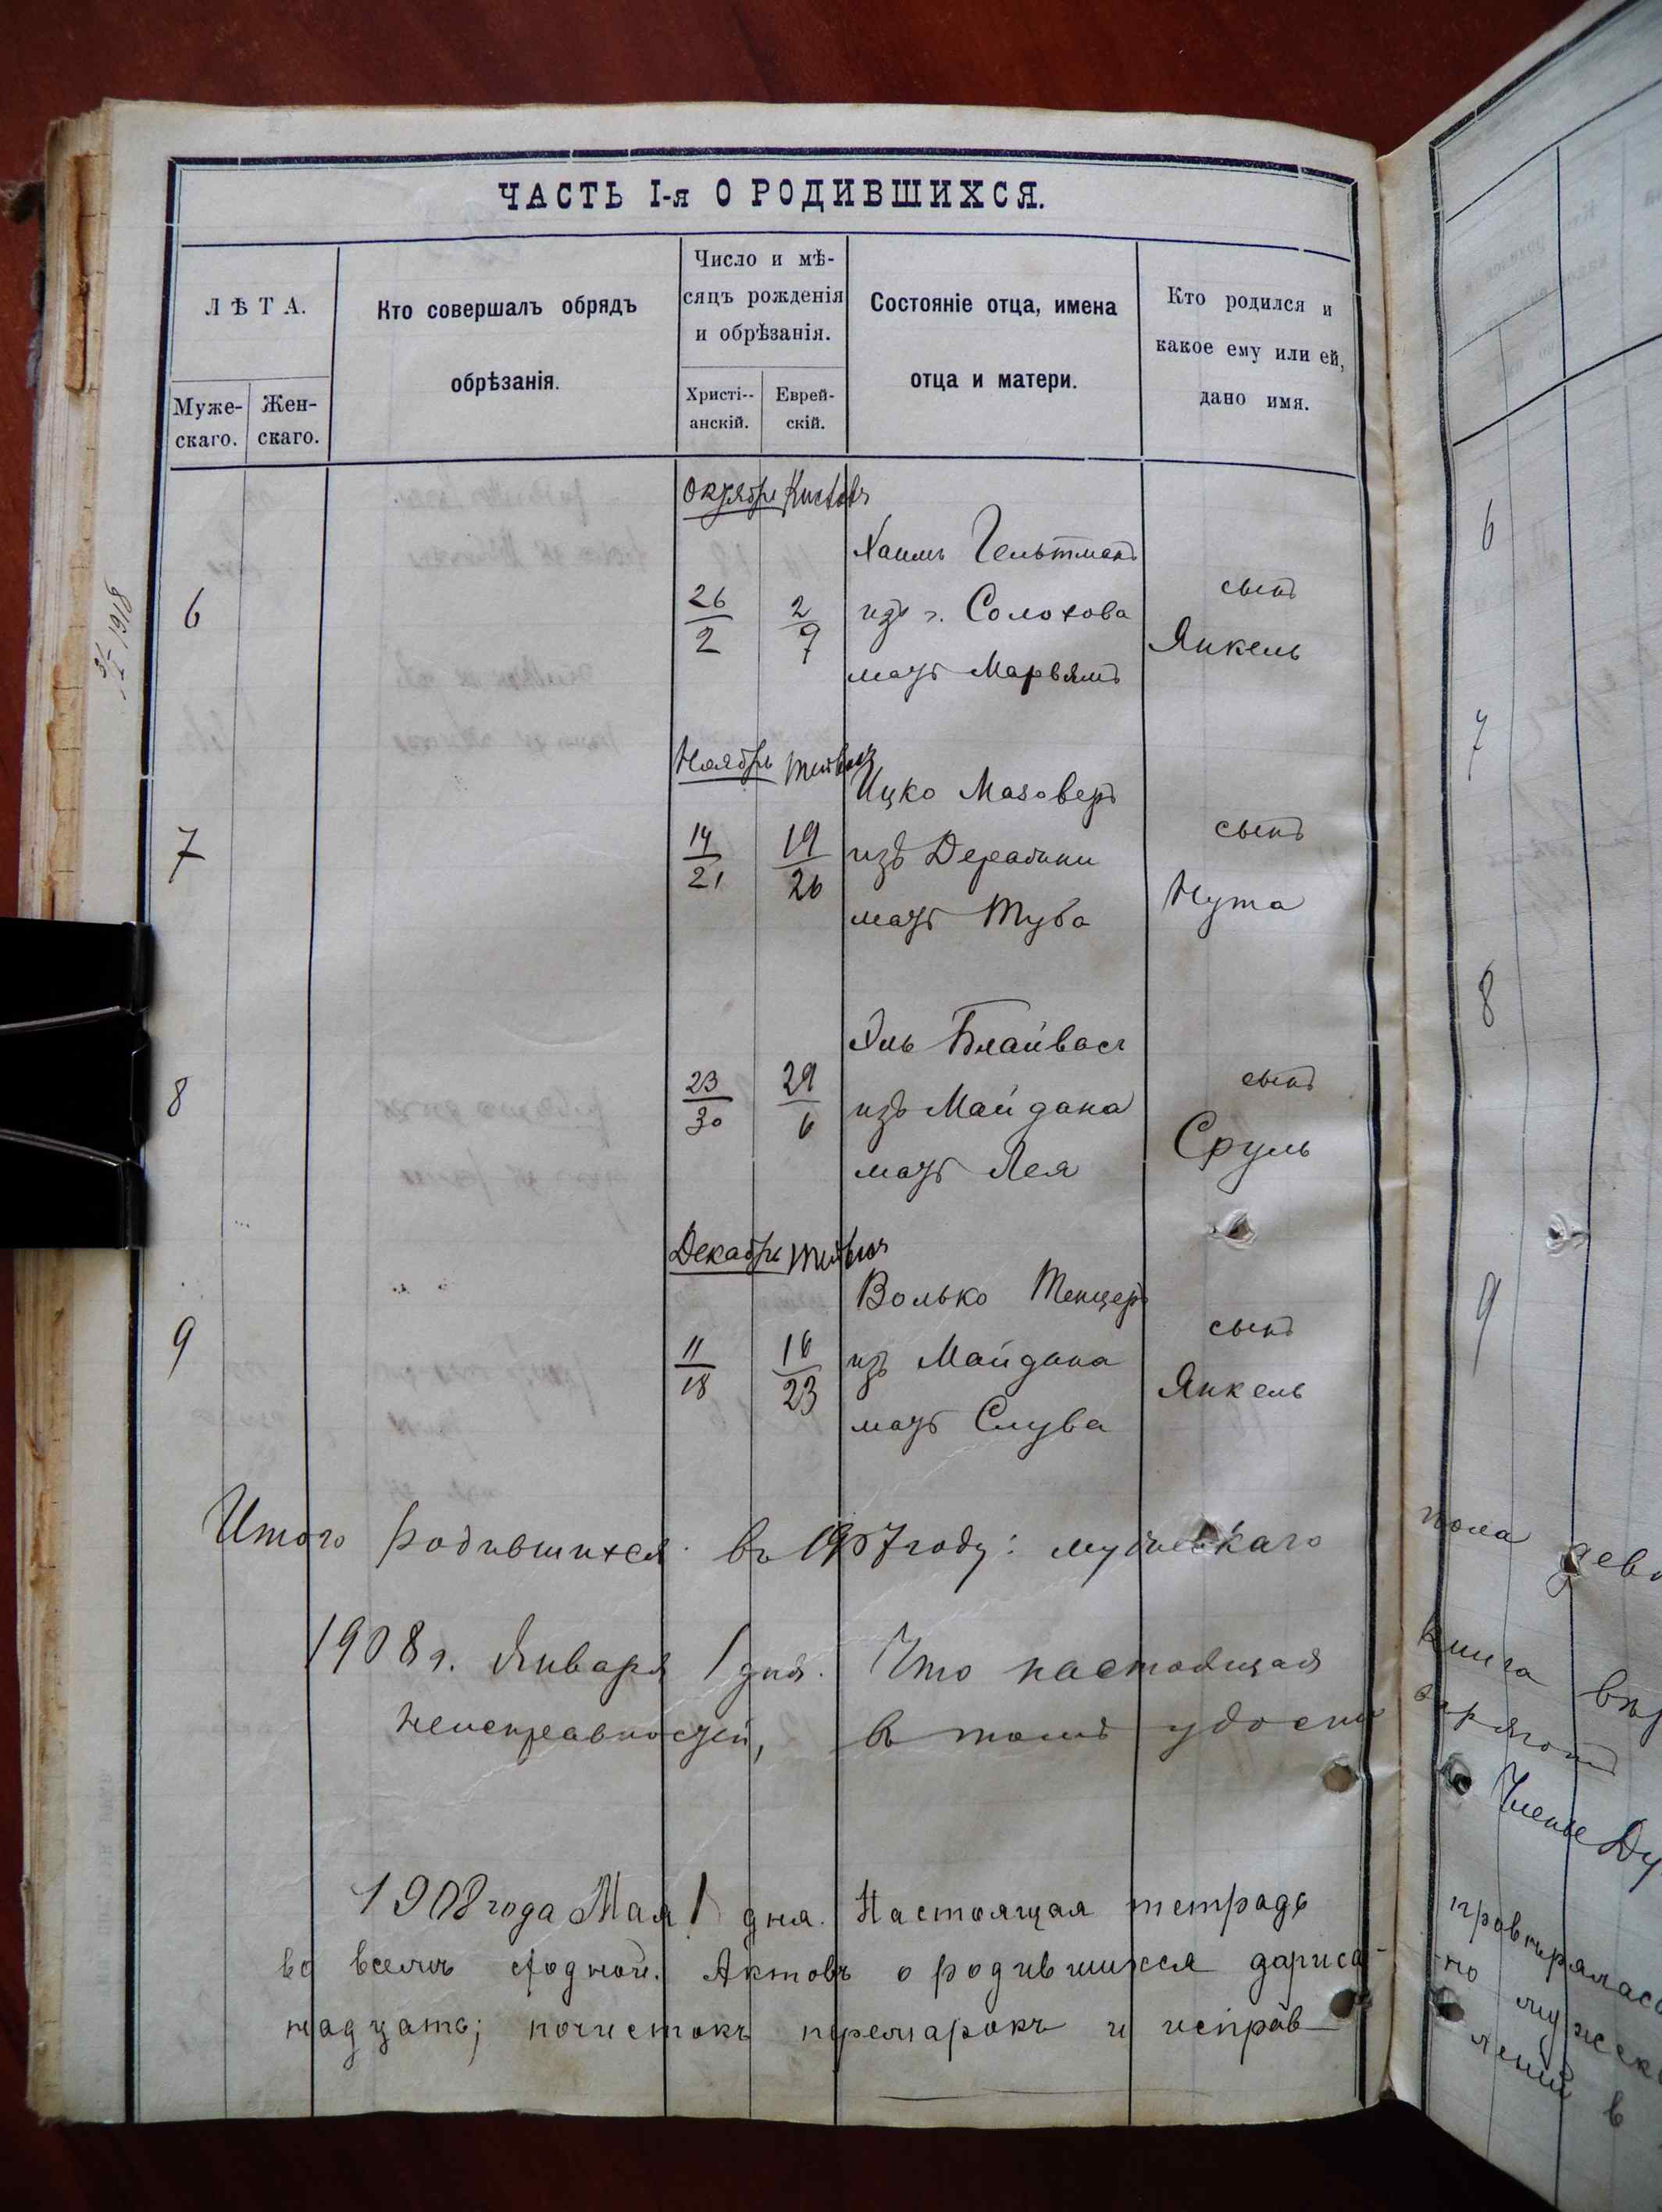 ЧАСТЬ I-я О РОДИВШИХСЯ.
ЛѢТА.
Муже-
скаго.
Жен-
скаго.
Кто совершалъ обрядъ
обрѣзанія.
Число и мѣ-
сяцъ рожденія
и обрѣзанія.
Христі--
анскій.
Еврей-
скій.
Состояніе отца, имена
отца и матери.
Кто родился и
какое ему или ей,
дано имя.
Октябрь Кислевъ
6
26
2
2
9
Хаимъ Гельтманъ
изъ г. Солохова
мать Марьямъ
сынъ
Янкель
Ноябрь
7
14
21
19
26
Ицко Мазоверъ
изъ Деражни
мать Туба
сынъ
Нута
8
23
30
29
6
Блайвасъ
изъ Майдана
мать Лея
сынъ
Сруль
Декабрь
9
11
18
16
23
Волько Тенцеръ
изъ Майдана
мать Слува
сынъ
Янкель
Итого родившихся въ 1907 году: мужескаго
1908 г. Января 1 дня. Что настоящая
неисправностей, въ томъ удосто
1908 года Мая 1 дня. Настоящая тетрадь
во всемъ сходной. Актовъ о родившихся
надцать; почистокъ перемарокъ и исправ
6
7
8
9
пола
книга
Члены Ду
лений в